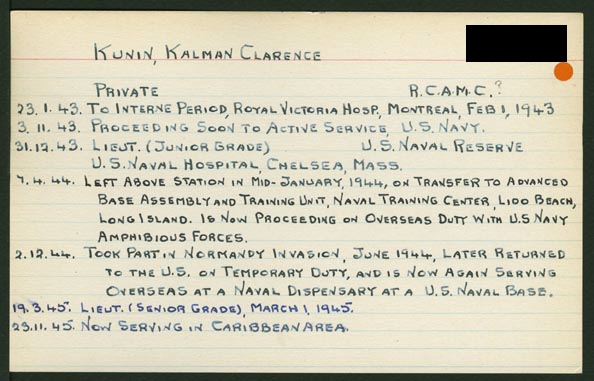 KUNIN, KALMAN CLARENCE
PRIVATE R.C.A.M.C.?
23.1.43. TO INTERNE PERIOD, ROYAL VICTORIA HOSP., MONTREAL, FEB 1, 1943
3.11.43. PROCEEDING SOON TO ACTIVE SERVICE, U.S. NAVY.
31.12.43. LIEUT. (JUNIOR GRADE) U.S. NAVAL RESERVE
U.S. NAVAL HOSPITAL, CHELSEA, MASS.
7.4.44. LEFT ABOVE STATION IN MID-JANUARY, 1944, ON TRANSFER TO ADVANCED
BASE ASSEMBLY AND TRAINING UNIT, NAVAL TRAINING CENTER, LIDO BEACH,
LONG ISLAND. IS NOW PROCEEDING ON OVERSEAS DUTY WITH U.S NAVY
AMPHIBIOUS FORCES.
2.12.44. TOOK PART IN NORMANDY INVASION, JUNE 1944, LATER RETURNED
TO THE U.S. ON TEMPORARY DUTY, AND IS NOW AGAIN SERVING
OVERSEAS AT A NAVAL DISPENSARY AT A U.S. NAVAL BASE.
19.3.45. LIEUT. (SENIOR GRADE), MARCH 1, 1945.
23.11.45. NOW SERVING IN CARIBBEAN AREA.